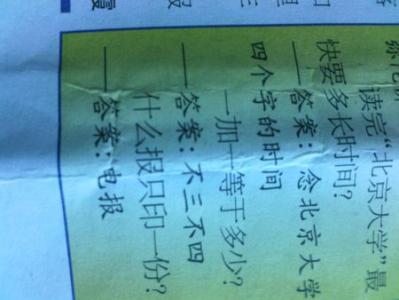 读完“北京大学”最
快要多长时间?
——答案:念北京大学
四个字的时间
一加一等于多少?
——答案:不三不四
什么报只印一份?
——答案:电报